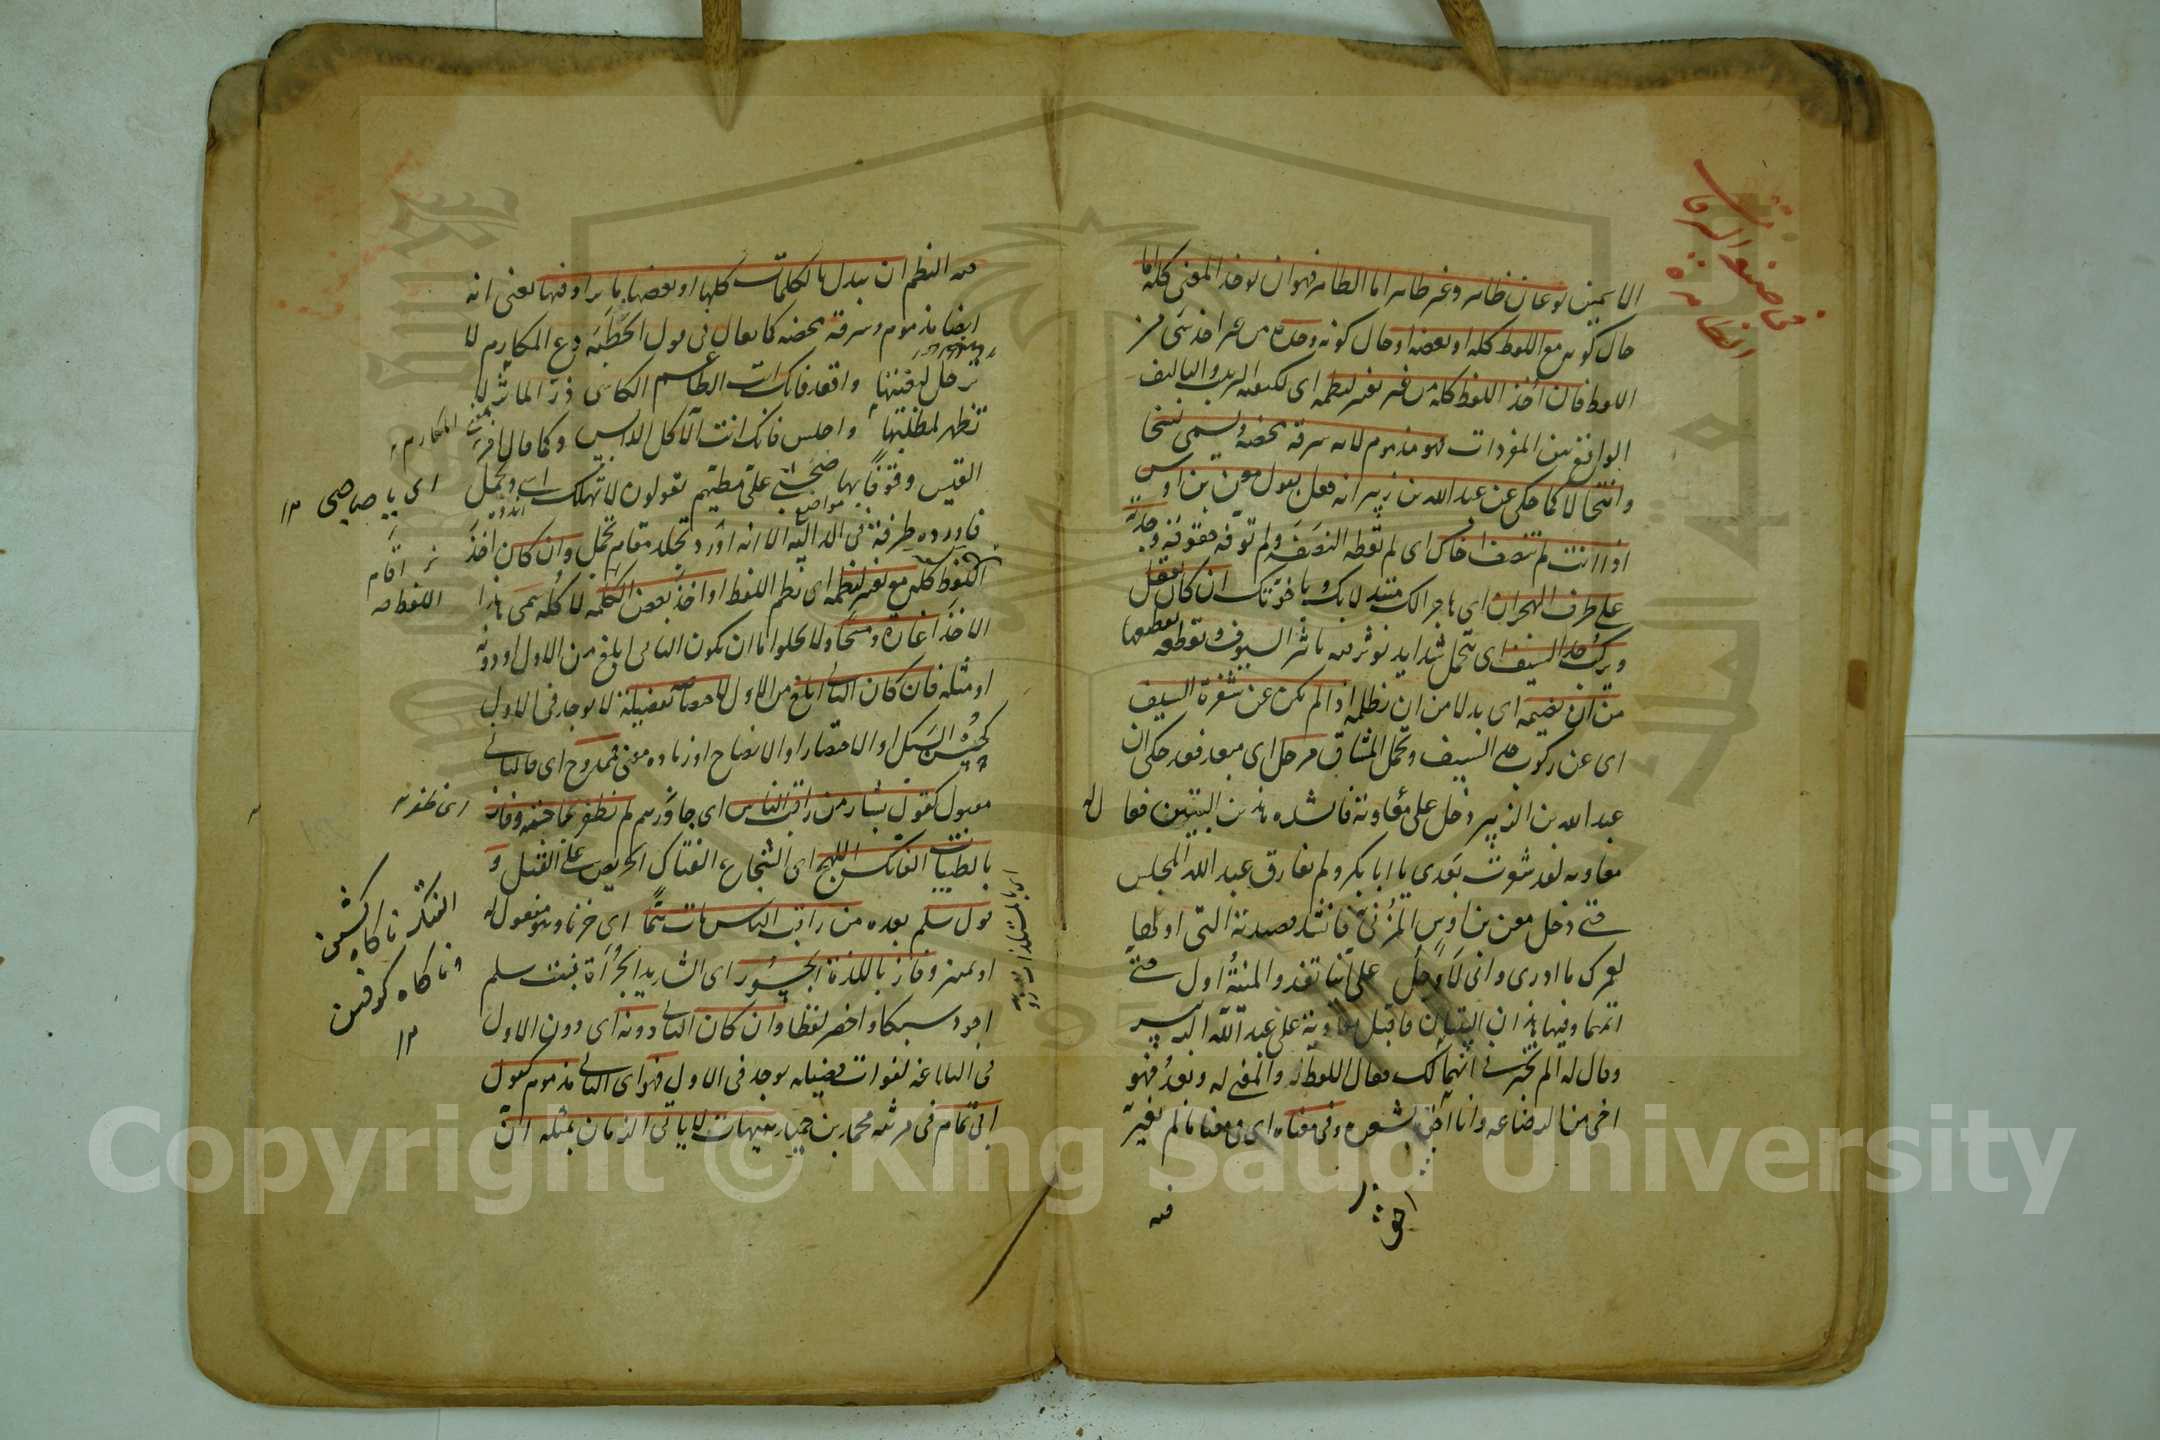 الاسمين نوعان ظاهر وغير ظاهر اما الظاهر فهو ان يوخذ المعنى كله اما
حال كونه مع اللفظ كله او بعضه او حال كونه وحده من غير اخذ شئ من
اللفظ فان اخذ اللفظ كله من غير تغيير لنظمه اى لكيفية الترتيب والتاليف
الواقع بين المفردات فهو مذموم لانه سرقة محضة ويسمى نسخا
وانتحالا كما حكى عن عبد الله بن زبير انه فعل بقول معن بن اوس
اذا انت لم تنصف اخاك اى لم تعطه النصفة ولم توفه حقوقه وجدته
على طرف الهجران اى هاجرا لك متبدلا بك وباخوتك ان كان يعقل
ويركب حد السيف اى يتحمل شدايد تؤثر فيه تاثير السيوف وتقطعه تقطيعها
من ان تضيمه اى بدلا من ان تظلمه اذا لم يكن عن شفرة السيف
اى عن ركوب حد السيف وتحمل المشاق مزحل اى مبعد فقد حكى ان
عبد الله بن الزبير دخل على معاوية فانشده هذين البيتين فقال له
معاوية لقد شعرت بعدى يا ابا بكر ولم يفارق عبد الله المجلس
حتى دخل معن بن اوس المزنى فانشد قصيدته التى اولها
لعمرك ما ادرى وانى لاوجل على اينا تغدو المنية اول حتى
اتمها وفيها هذان البيتان فاقبل معاوية على عبد الله الزبير
وقال له الم تخبرنى انهما لك فقال اللفظ له والمعنى لى وبعد فهو
اخى من الرضاعه وانا احق بشعره وفى معناه اى فى معنا ما لم يغير
فيه
فيه النظم ان يبدل بالكلمات كلها او بعضها ما يرادفها يعنى انه
ايضا مذموم وسرقة محضه كما يقال فى قول الحطيئة دع المكارم لا
ترحل لبغيتها واقعد فانك انت الطاعم الكاسى ذر الماثر لا
تظهر لمطلبها واجلس فانك انت الآكل اللابس وكما قال امرء
القيس وقوفا بها صحبى على مطيهم يقولون لا تهلك اسى وتجمل
فاورده طرفة فى الداليه الا انه اورد تجلد مقام تجمل وان كان اخذ
اللفظ كله مع تغيير لنظمه اى نظم اللفظ او اخذ بعض الكلمه لا كله سمى هذا
الاخذ اغارة ومسخا ولا يخلوا اما ان يكون الثانى ابلغ من الاول او دونه
او مثله فان كان الثانى ابلغ من الاول لاختصاصه بفضيلة لا توجد فى الاول
كحسن السبك او الاختصار او الايضاح او زياده معنى فممدوح اى فالثانى
مقبول كقول بشار من راقب الناس اى حاذرهم لم يظفر بحاجته وفاز
بالطيبات الفاتك اللهج اى الشجاع الفتاك الحريص على القتل و
قول سلم بعده من راقب الناس مات غما اى حزنا وهو مفعول له
او تميز وفاز باللذة الجسور اى الشديد الجرأة فبيت سلم
اجود سبكا واخصر لفظا وان كان الثانى دونه اى دون الاول
فى البلاغه لفوات فضيله توجد فى الاول فهو اى الثانى مذموم كقول
ابى تمام فى مرثية محمد بن حميد هيهات لا ياتى الزمان بمثله ان
اى يا صاحبى ١٢